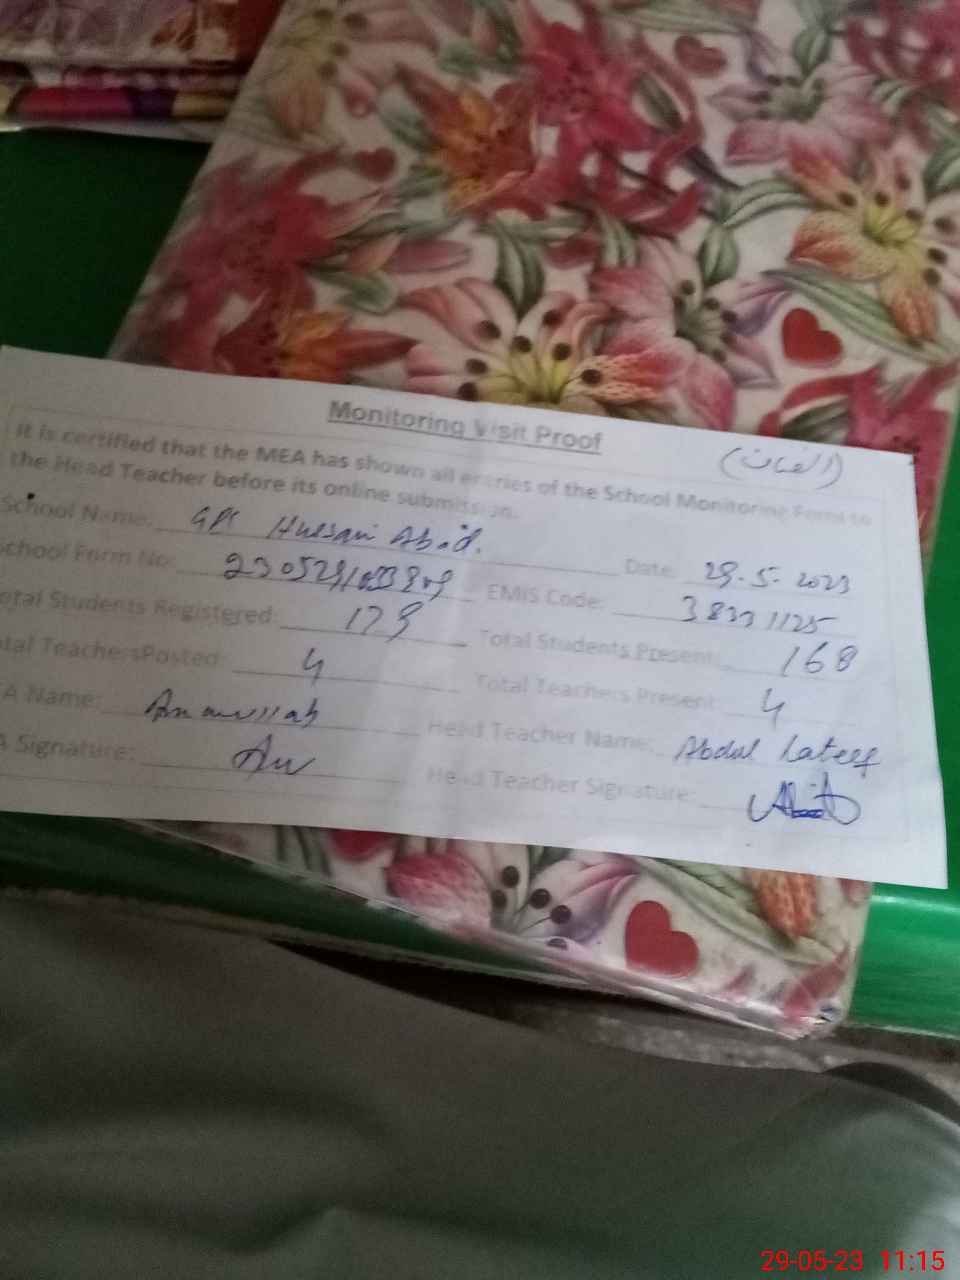 Monitoring Visit Proof
It is certified that the MEA has shown all entries of the School Monitoring Form to
the Head Teacher before its online submission.
School Name: GPS Hussain Abad.
Date: 29.5.2023
School Form No:
EMIS Code: 38331125
Total Students Registered: 179
Total Students Present: 168
Total TeachersPosted: 4
Total Teachers Present: 4
A Name: Amanullah
Head Teacher Name: Abdul Lateef
A Signature:
Head Teacher Signature:
29-05-23 11:15